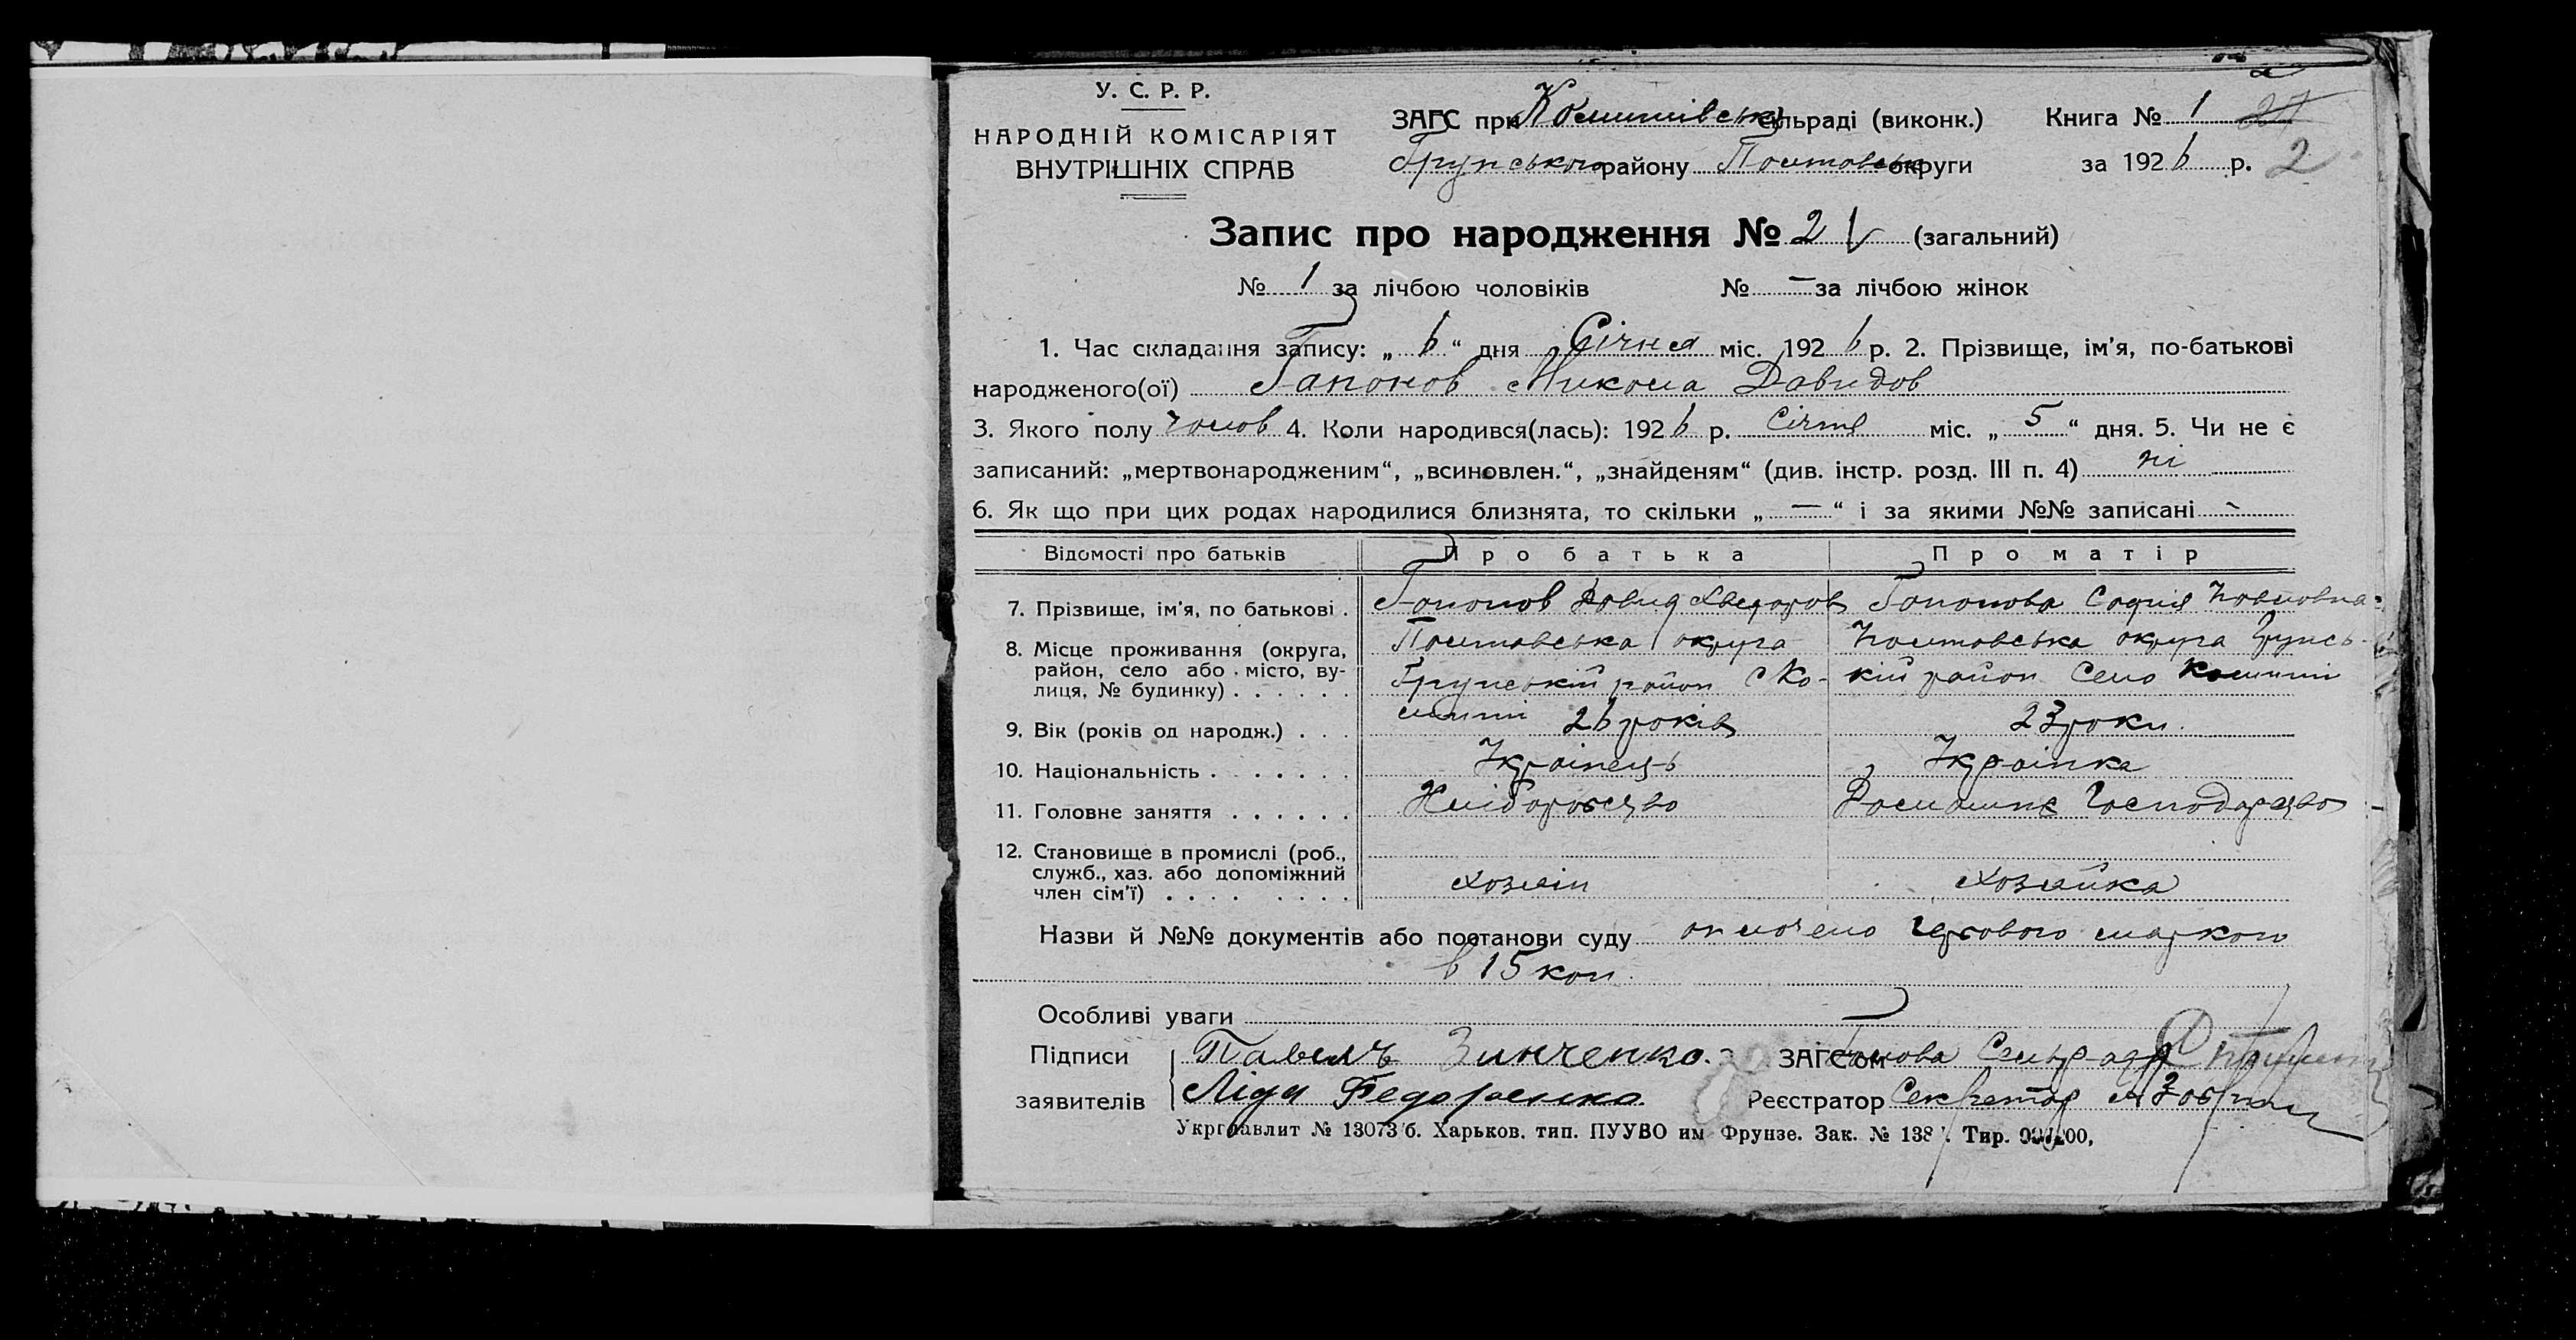 У. С. Р. Р.
НАРОДНІЙ КОМІСАРІЯТ
ВНУТРІШНІХ СПРАВ
ЗАГС при Комишівськ сільраді (виконк.)
Грунського району Полтавськ округи
Книга № 1 27
за 1926 р. 2
Запис про народження № 2 (загальний)
№ 1 за лічбою чоловіків № — за лічбою жінок
1. Час складання запису: „ 6 “ дня Січня міс. 1926 р. 2. Прізвище, ім'я, по-батькові
народженого(ої) Гапонов Микола Давидов
3. Якого полу чолов 4. Коли народився(лась): 1926 р. Січня міс. „ 5 “ дня. 5. Чи не є
записаний: „мертвонародженим“, „всиновлен.“, „знайденям“ (див. інстр. розд. III п. 4) ні
6. Як що при цих родах народилися близнята, то скільки „ — “ і за якими №№ записані -
Відомості про батьків Про батька Про матір
7. Прізвище, ім'я, по батькові . Гапонов Давид Хведоров Гапонова Софія Павловна
8. Місце проживання (округа, район, село або місто, вулиця, № будинку) . . . . . . Полтавська округа Грунський район С Комиши Полтавська округа Грунський район Село Комиши
9. Вік (років од народж.) . . . 26 років 23 роки.
10. Національність . . . . . . . Українець Українка
11. Головне заняття . . . . . . Хліборобство Домашнє Господарство
12. Становище в промислі (роб., служб., хаз. або допоміжний член сім'ї) . . . . . . . . хозяїн хозяйка
Назви й №№ документів або поотанови суду оплочено гербового маркою
в 15 коп.
Особливі уваги
Підписи заявителів Павелъ Зинченко. ЗАГСом Голова Сільради
Ліда Федоренко. Реєстратор Секретар
Укрглавлит № 13073/б. Харьков. тип. ПУУВО им Фрунзе. Зак. № 138 . Тир. 00,